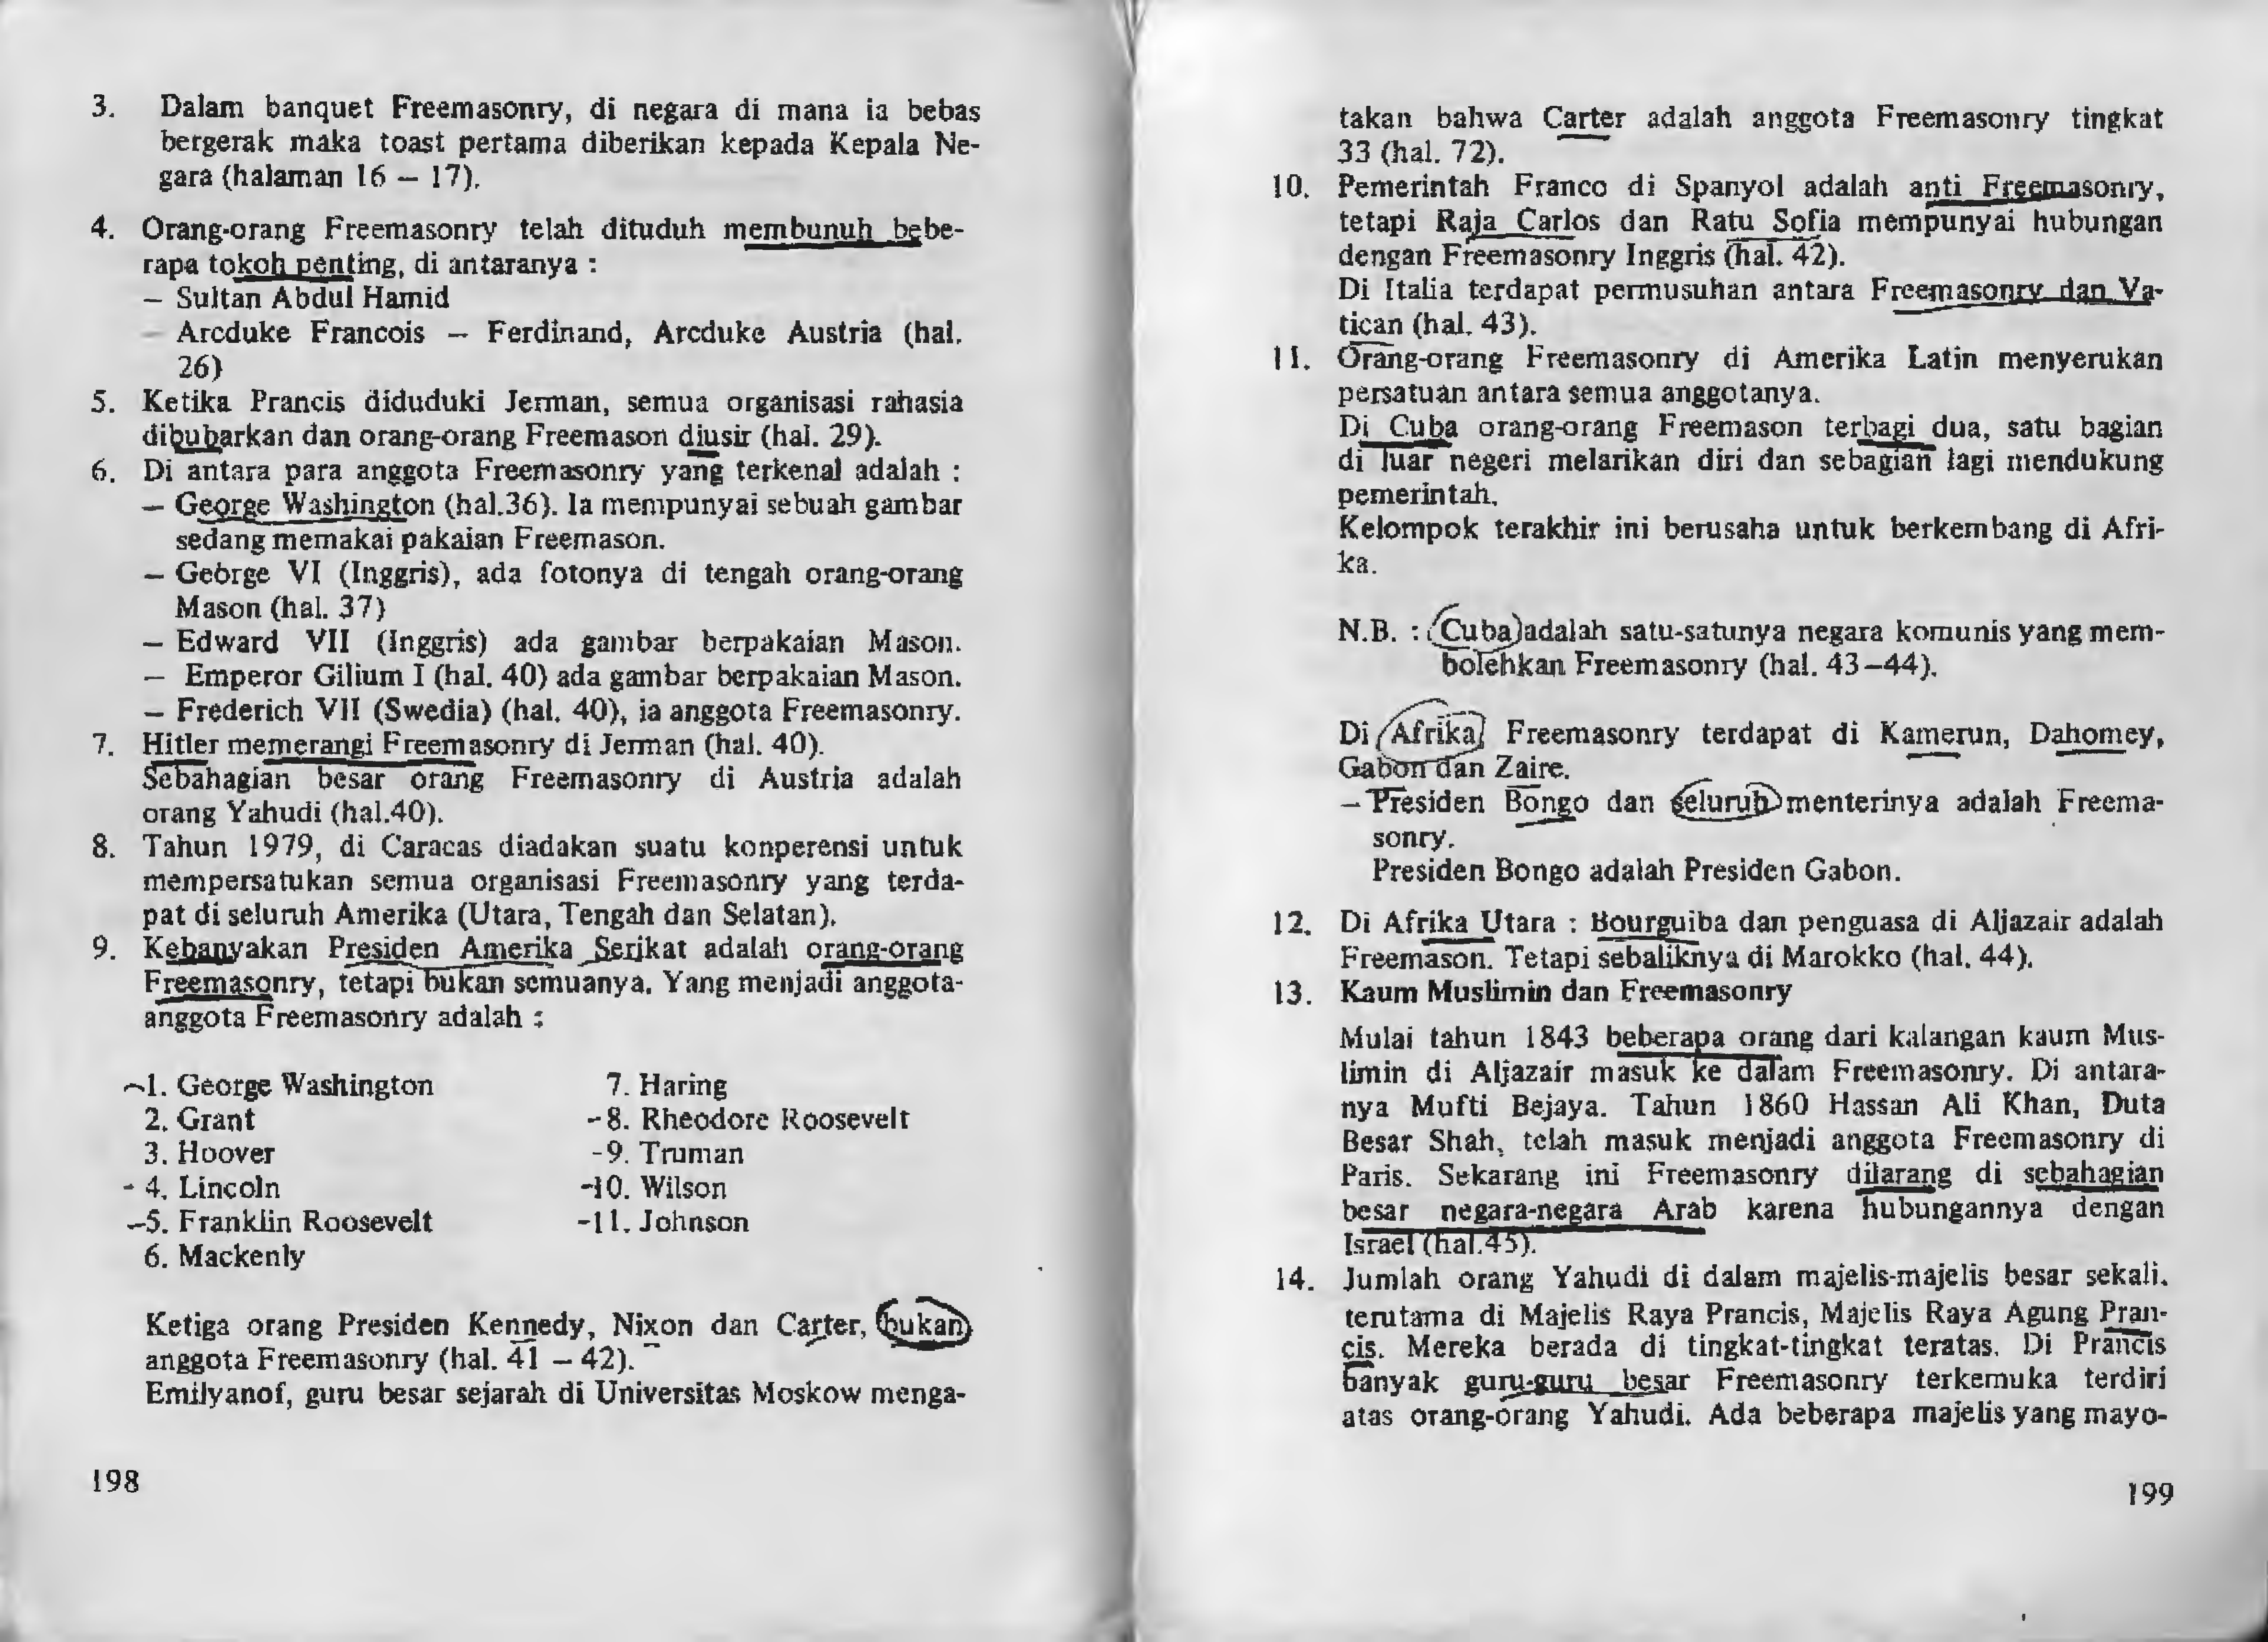 3. Dalam banquet Freemasonry, di negara di mana ia bebas
bergerak maka toast pertama diberikan kepada Kepala Ne-
gara (halaman 16 – 17).
4. Orang-orang Freemasonry telah dituduh membunuh bebe-
rapa tokoh penting, di antaranya :
– Sultan Abdul Hamid
– Arcduke Francois – Ferdinand, Arcduke Austria (hal.
26)
5. Ketika Prancis diduduki Jerman, semua organisasi rahasia
dibubarkan dan orang-orang Freemason diusir (hal. 29).
6. Di antara para anggota Freemasonry yang terkenal adalah :
– George Washington (hal.36). Ia mempunyai sebuah gambar
sedang memakai pakaian Freemason.
– George VI (Inggris), ada fotonya di tengah orang-orang
Mason (hal. 37)
– Edward VII (Inggris) ada gambar berpakaian Mason.
– Emperor Gilium I (hal. 40) ada gambar berpakaian Mason.
– Frederich VII (Swedia) (hal. 40), ia anggota Freemasonry.
7. Hitler memerangi Freemasonry di Jerman (hal. 40).
Sebahagian besar orang Freemasonry di Austria adalah
orang Yahudi (hal.40).
8. Tahun 1979, di Caracas diadakan suatu konperensi untuk
mempersatukan semua organisasi Freemasonry yang terda-
pat di seluruh Amerika (Utara, Tengah dan Selatan).
9. Kebanyakan Presiden Amerika Serikat adalah orang-orang
Freemasonry, tetapi bukan semuanya. Yang menjadi anggota-
anggota Freemasonry adalah :
1. George Washington
2. Grant
3. Hoover
4. Lincoln
5. Franklin Roosevelt
6. Mackenly
7. Haring
8. Rheodore Roosevelt
9. Truman
10. Wilson
11. Johnson
Ketiga orang Presiden Kennedy, Nixon dan Carter, bukan
anggota Freemasonry (hal. 41 – 42).
Emilyanof, guru besar sejarah di Universitas Moskow menga-
198
takan bahwa Carter adalah anggota Freemasonry tingkat
33 (hal. 72).
10. Pemerintah Franco di Spanyol adalah anti Freemasonry,
tetapi Raja Carlos dan Ratu Sofia mempunyai hubungan
dengan Freemasonry Inggris (hal. 42).
Di Italia terdapat permusuhan antara Freemasonry dan Va-
tican (hal. 43).
11. Orang-orang Freemasonry di Amerika Latin menyerukan
persatuan antara semua anggotanya.
Di Cuba orang-orang Freemason terbagi dua, satu bagian
di luar negeri melarikan diri dan sebagian lagi mendukung
pemerintah.
Kelompok terakhir ini berusaha untuk berkembang di Afri-
ka.
N.B. : Cuba adalah satu-satunya negara komunis yang mem-
bolehkan Freemasonry (hal. 43–44).
Di Afrika Freemasonry terdapat di Kamerun, Dahomey,
Gabon dan Zaire.
– Presiden Bongo dan seluruh menterinya adalah Freema-
sonry.
Presiden Bongo adalah Presiden Gabon.
12. Di Afrika Utara : Bourguiba dan penguasa di Aljazair adalah
Freemason. Tetapi sebaliknya di Marokko (hal. 44).
13. Kaum Muslimin dan Freemasonry
Mulai tahun 1843 beberapa orang dari kalangan kaum Mus-
limin di Aljazair masuk ke dalam Freemasonry. Di antara-
nya Mufti Bejaya. Tahun 1860 Hassan Ali Khan, Duta
Besar Shah, telah masuk menjadi anggota Freemasonry di
Paris. Sekarang ini Freemasonry dilarang di sebahagian
besar negara-negara Arab karena hubungannya dengan
Israel (hal.45).
14. Jumlah orang Yahudi di dalam majelis-majelis besar sekali.
terutama di Majelis Raya Prancis, Majelis Raya Agung Pran-
cis. Mereka berada di tingkat-tingkat teratas. Di Prancis
banyak guru-guru besar Freemasonry terkemuka terdiri
atas orang-orang Yahudi. Ada beberapa majelis yang mayo-
199